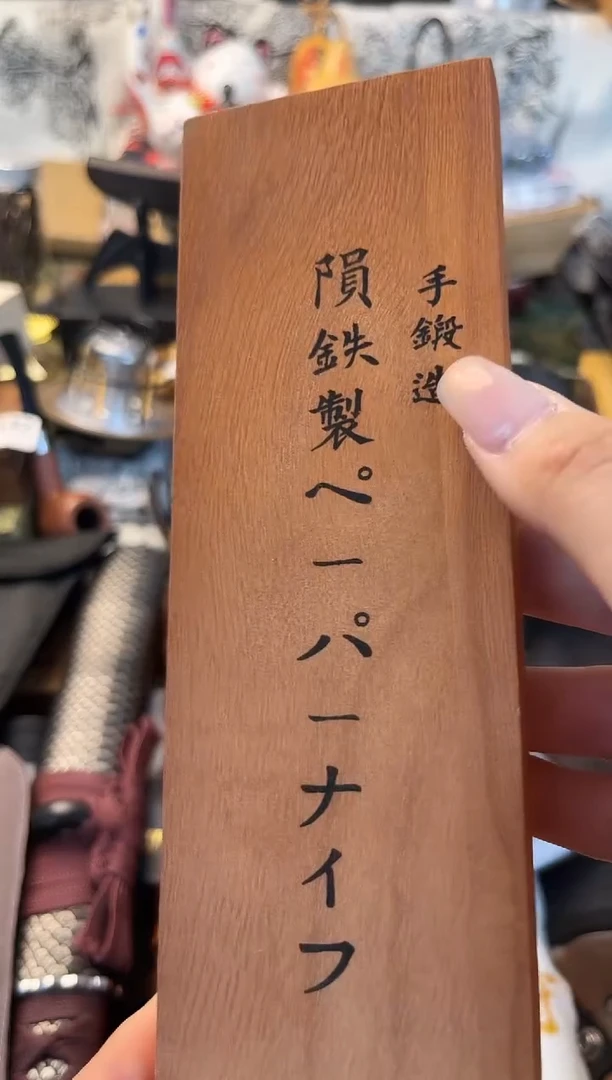 手鍛造
隕鉄製ペーパーナイフ